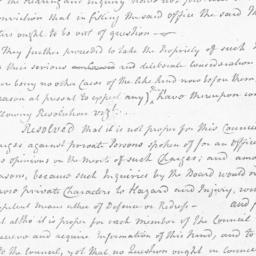 conviction that in filling the said office the said
ought to be out of question
They further proceeded to take the Propriety of such
their serious and deliberate consideration
being no other Cases of the like kind now before them
reason at present to expect any) have thereupon con
following Resolution vizt:
Resolved that it is not proper for this Council
charges against private Persons spoken of for an office
opinions on the merits of such Charges; and amo
reasons, because such Inquiries by the Board would
those private Characters to Hazard and Injury, wi
competent means either of Defence or Redress — and
altho it is proper for each member of the Council
and acquire information of this kind, and to
to the Council, yet that no Question ought in Council